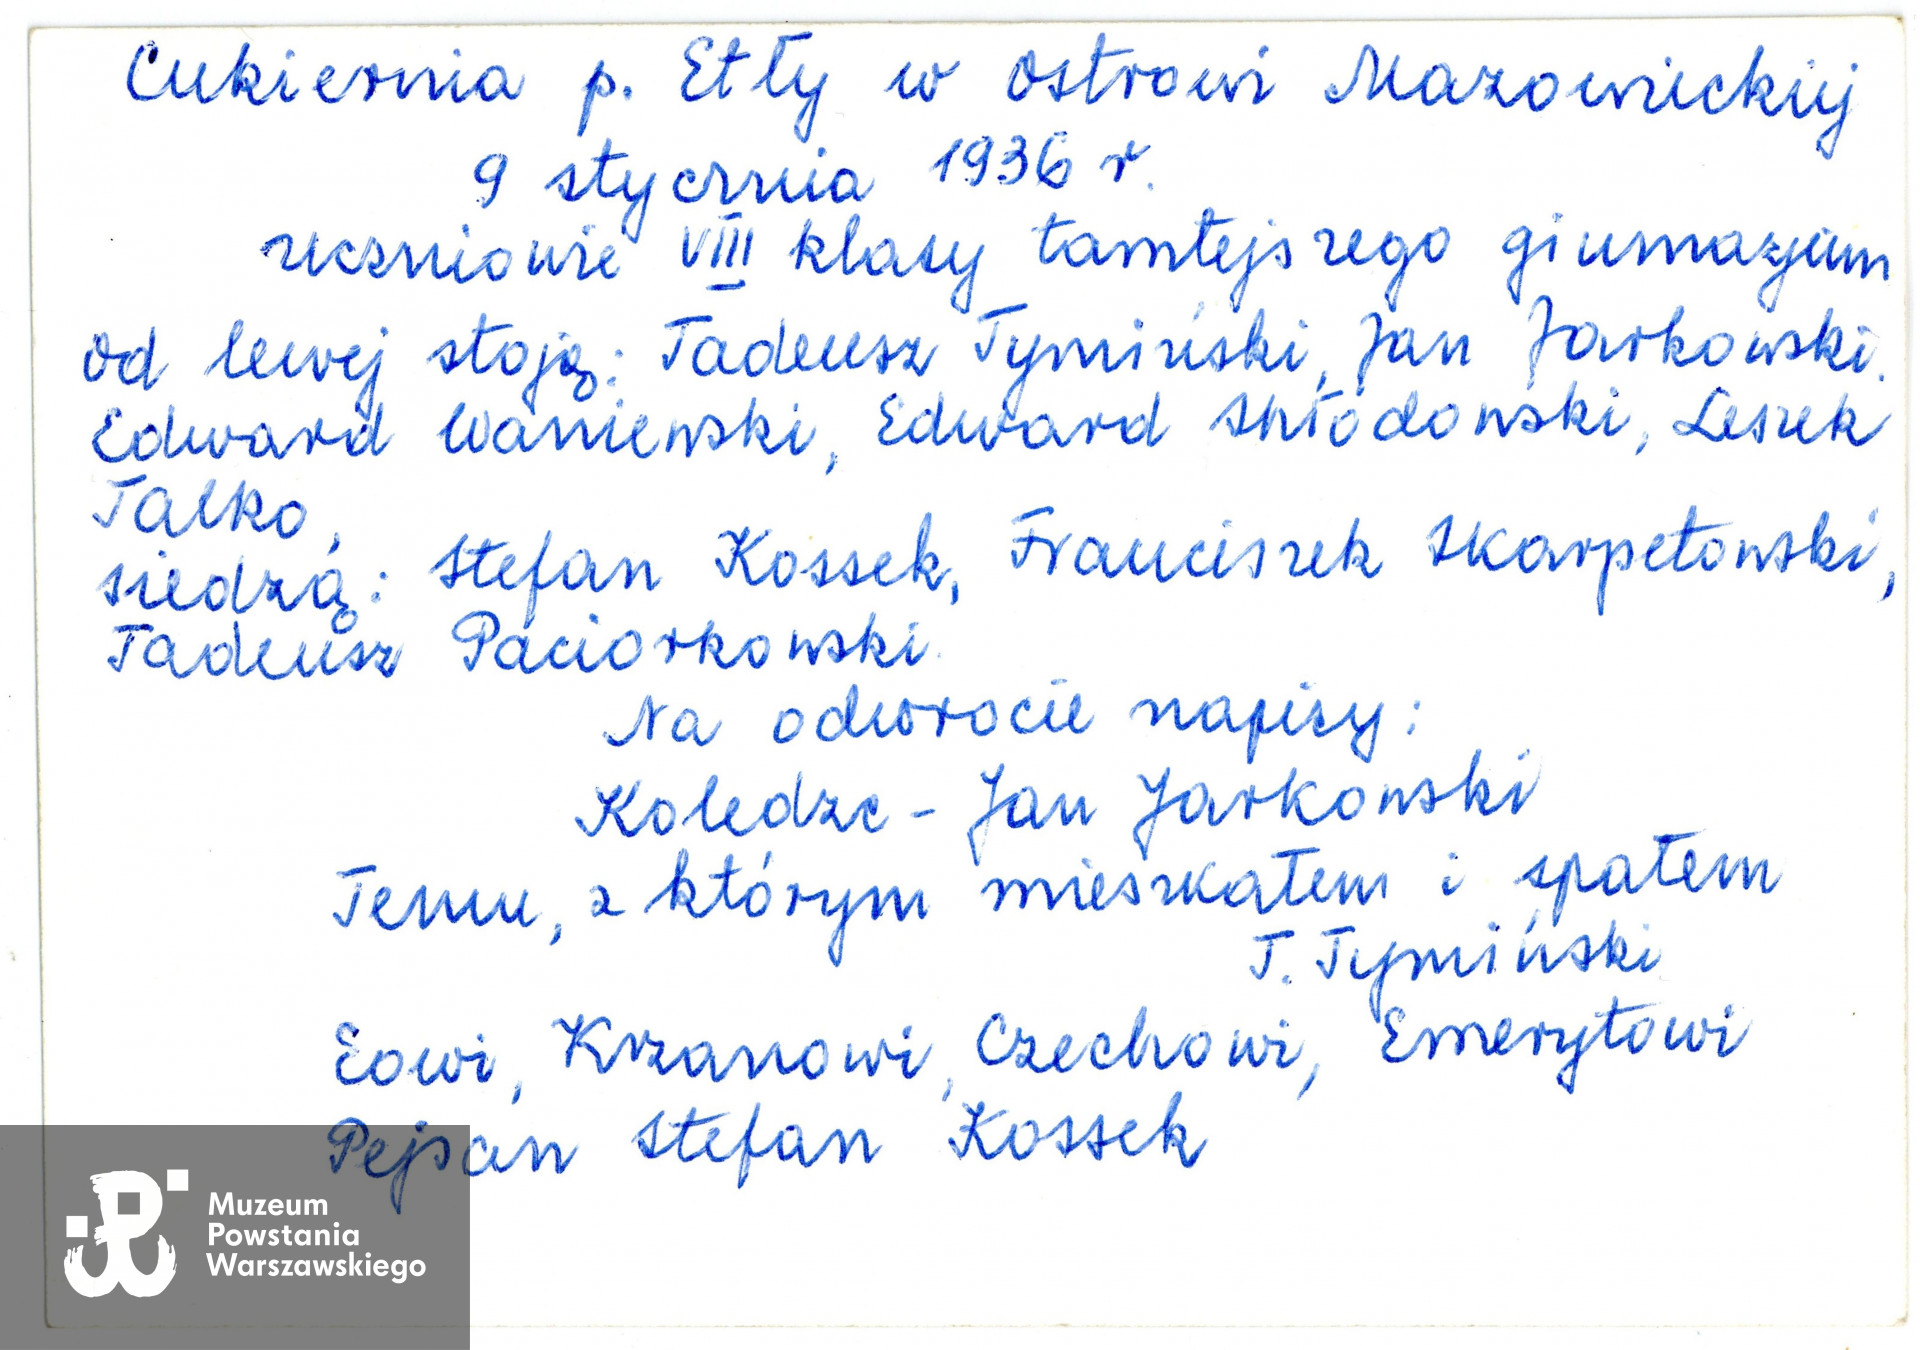 Cukiernia p. Etły w Ostrowi Mazowieckiej
9 stycznia 1936 r.
uczniowie VIII klasy tamtejszego gimnazjum
od lewej stoją: Tadeusz Tymiński, Jan Jarkowski.
Edward Waniewski, Edward Skłodowski, Leszek
Talko,
siedzą: Stefan Kossek, Franciszek Skarpetowski,
Tadeusz Paciorkowski.
Na odwrocie napisy:
Koledze - Jan Jarkowski
Temu, z którym mieszkałem i spałem
T. Tymiński
Eowi, Krzanowi, Czechowi, Emerytowi
Pejsan Stefan Kossek
Muzeum
Powstania
Warszawskiego